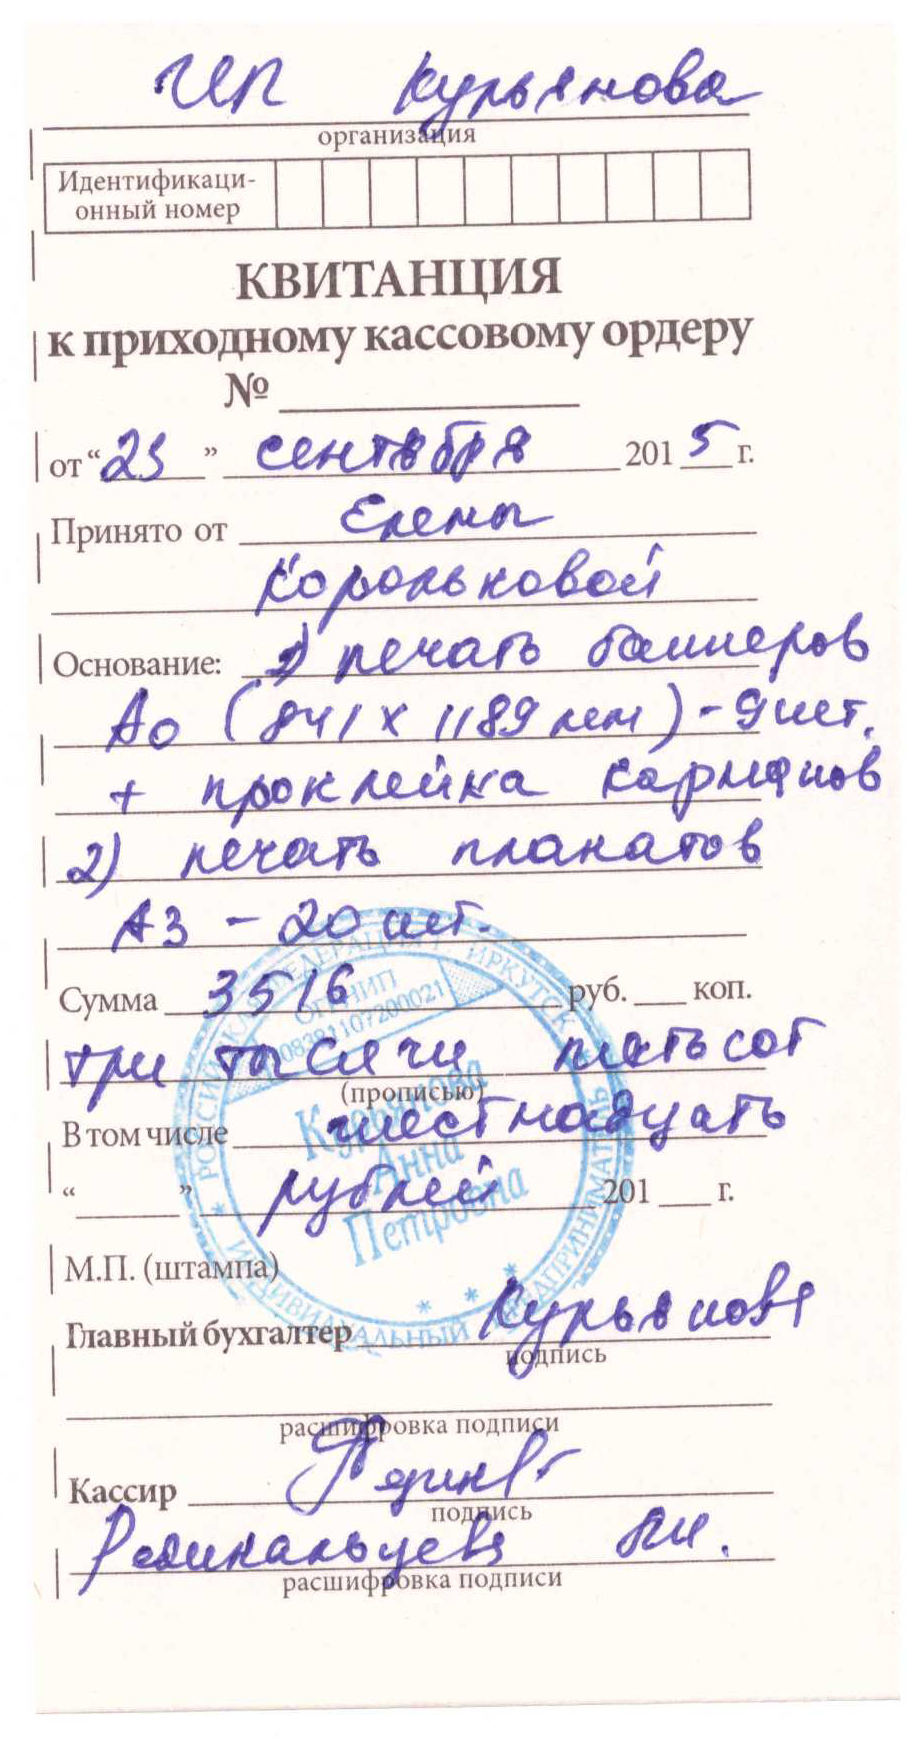 ИП Курьянова
организация
Идентификаци-
онный номер
КВИТАНЦИЯ
к приходному кассовому ордеру
№
от “23” сентября 2015 г.
Принято от Елены
Корольковой
Основание: 1) печать баннеров
А0 (841 х 1189 мм) - 9 шт.
+ проклейка карманов
2) печать плакатов
А3 - 20 шт.
Сумма 3516 руб. ___ коп.
три тысячи пятьсот
(прописью)
В том числе шестнадцать
“ ” рублей 201 ___ г.
М.П. (штампа)
Главный бухгалтер Курьянова
подпись
расшифровка подписи
Кассир
подпись
расшифровка подписи
РОССИЙСКАЯ ФЕДЕРАЦИЯ Г. ИРКУТСК
ОГРНИП
Курьянова
Анна
Петровна
* * *
ИНДИВИДУАЛЬНЫЙ ПРЕДПРИНИМАТЕЛЬ